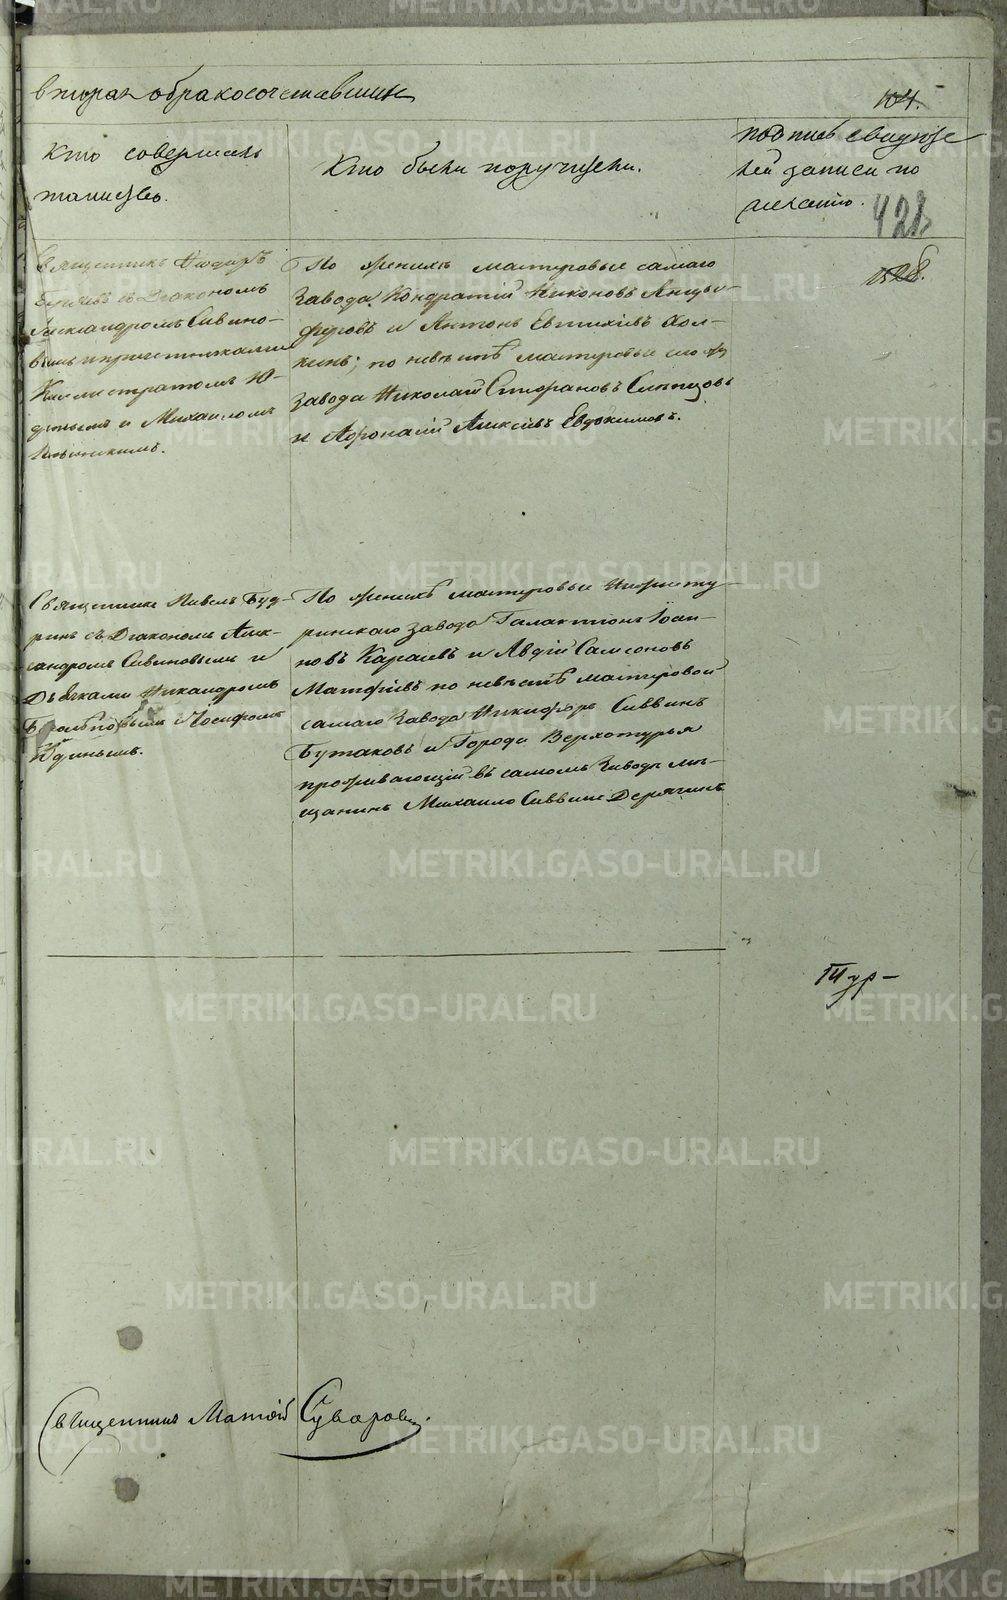 вторая о бракосочетавшихся
104.
Кто совершалъ
таинство.
Кто были поручители.
подпись свидѣте
лей записи по
желанію.
428
Священникъ
съ Діакономъ
Александромъ Сивино-
вымъ и причетниками
Каллистратомъ Ю-
динымъ и Михаиломъ
По женихѣ мастеровые самаго
завода Кондратій Никоновъ Анцы-
феровъ и Антонъ Евтихіевъ Хол-
кинъ; по невѣстѣ мастеровые сего же
завода Николай Стефановъ Слепцовъ
и Афонасій Алексѣевъ Евдокимовъ.
Священникъ Павелъ Буд-
ринъ съ Діакономъ Алек-
сандромъ Сивиновымъ и
Дьячками Никандромъ
и Іосифомъ
Юдинымъ.
По женихѣ мастеровые Нижнету-
ринскаго завода Галактіонъ Іоан-
новъ Караевъ и Авдій Самсоновъ
Матфіевъ по невѣстѣ мастеровой
самаго завода Никифоръ Саввинъ
Бутаковъ и Города Верхотурья
проживающій въ самомъ заводѣ мѣ-
щанинъ Михаило Саввинъ Дерягинъ
Тур-
Священникъ Матѳій Суворовъ.
METRIKI.GASO-URAL.RU